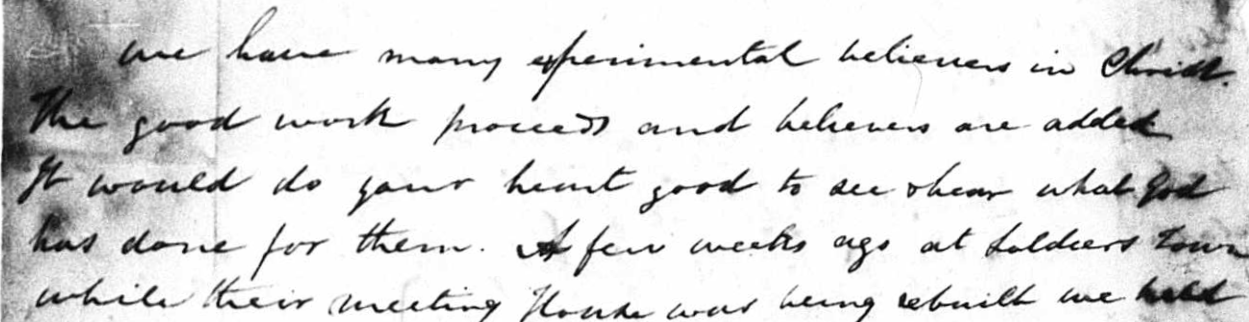 we have many experimental believers in Christ.
The good work proceeds and believers are added
It would do your heart good to see & hear what God
has done for them. A few weeks ago at Soldiers Town
while their meeting House was being rebuilt we held